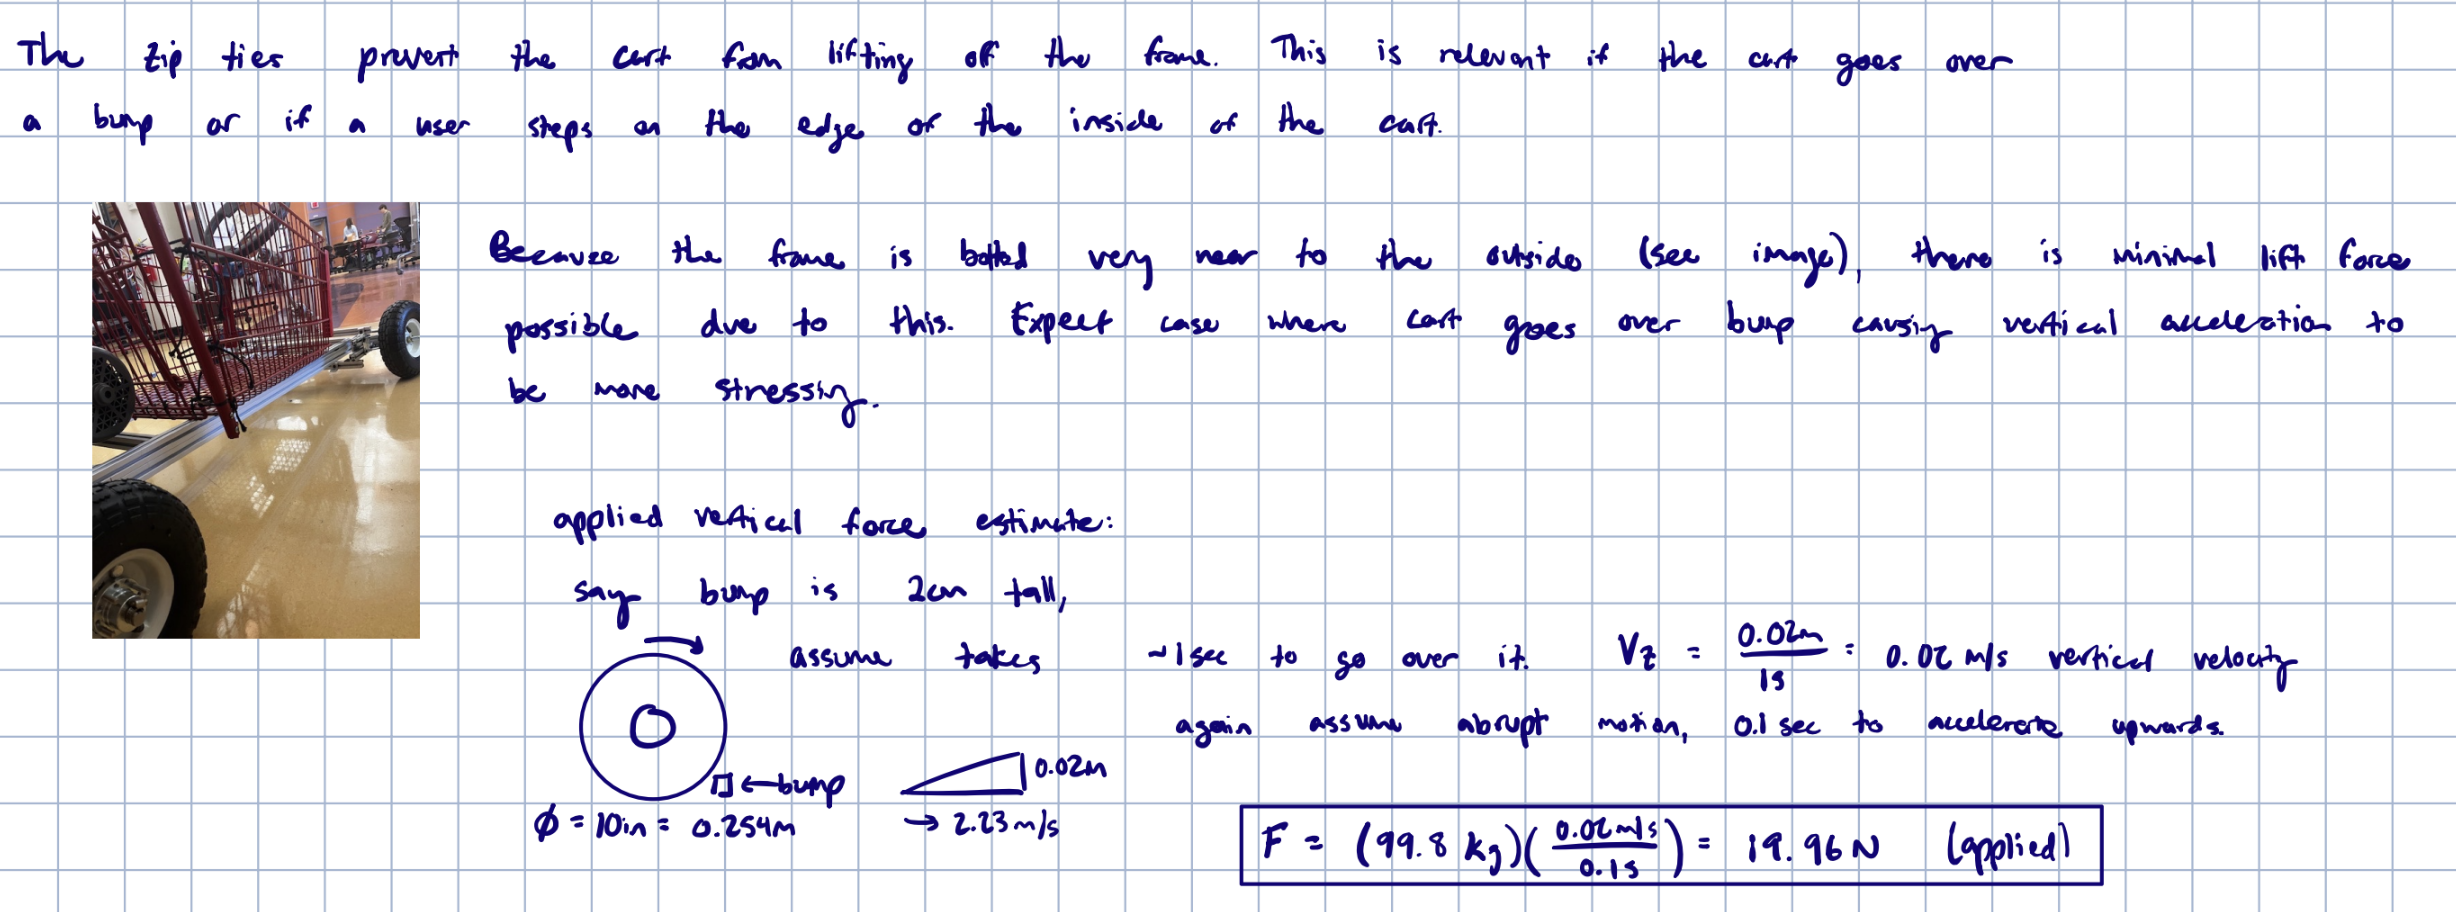 The zip ties prevent the cart from lifting off the frame. This is relevant if the cart goes over
a bump or if a user steps on the edge of the inside of the cart.
Because the frame is bolted very near to the outside (see image), there is minimal lift force
possible due to this. Expect case where cart goes over bump causing vertical acceleration to
be more stressing.
applied vertical force estimate:
say bump is 2cm tall,
assume takes ~1sec to go over it. Vz = 0.02m / 1s = 0.02 m/s vertical velocity
again assume abrupt motion, 0.1 sec to accelerate upwards.
←bump
0.02m
ϕ = 10in = 0.254m
→ 2.23 m/s
F = (99.8 kg)(0.02m/s / 0.1s) = 19.96 N (applied)